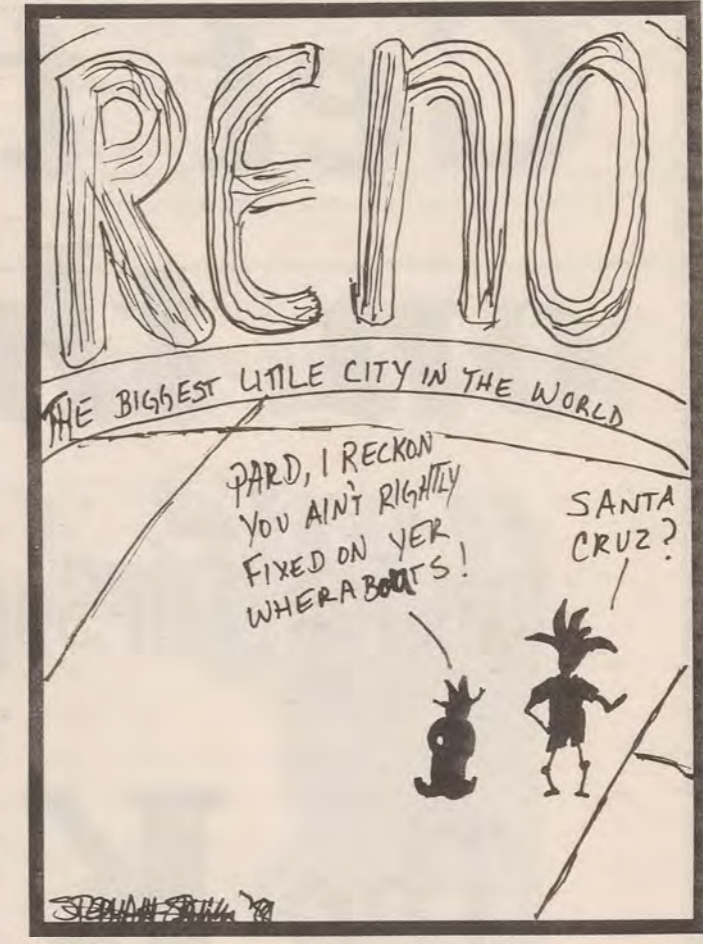 RENO
THE BIGGEST LITTLE CITY IN THE WORLD
PARD, I RECKON
YOU AIN'T RIGHTLY
FIXED ON YER
WHERABOUTS!
SANTA
CRUZ?